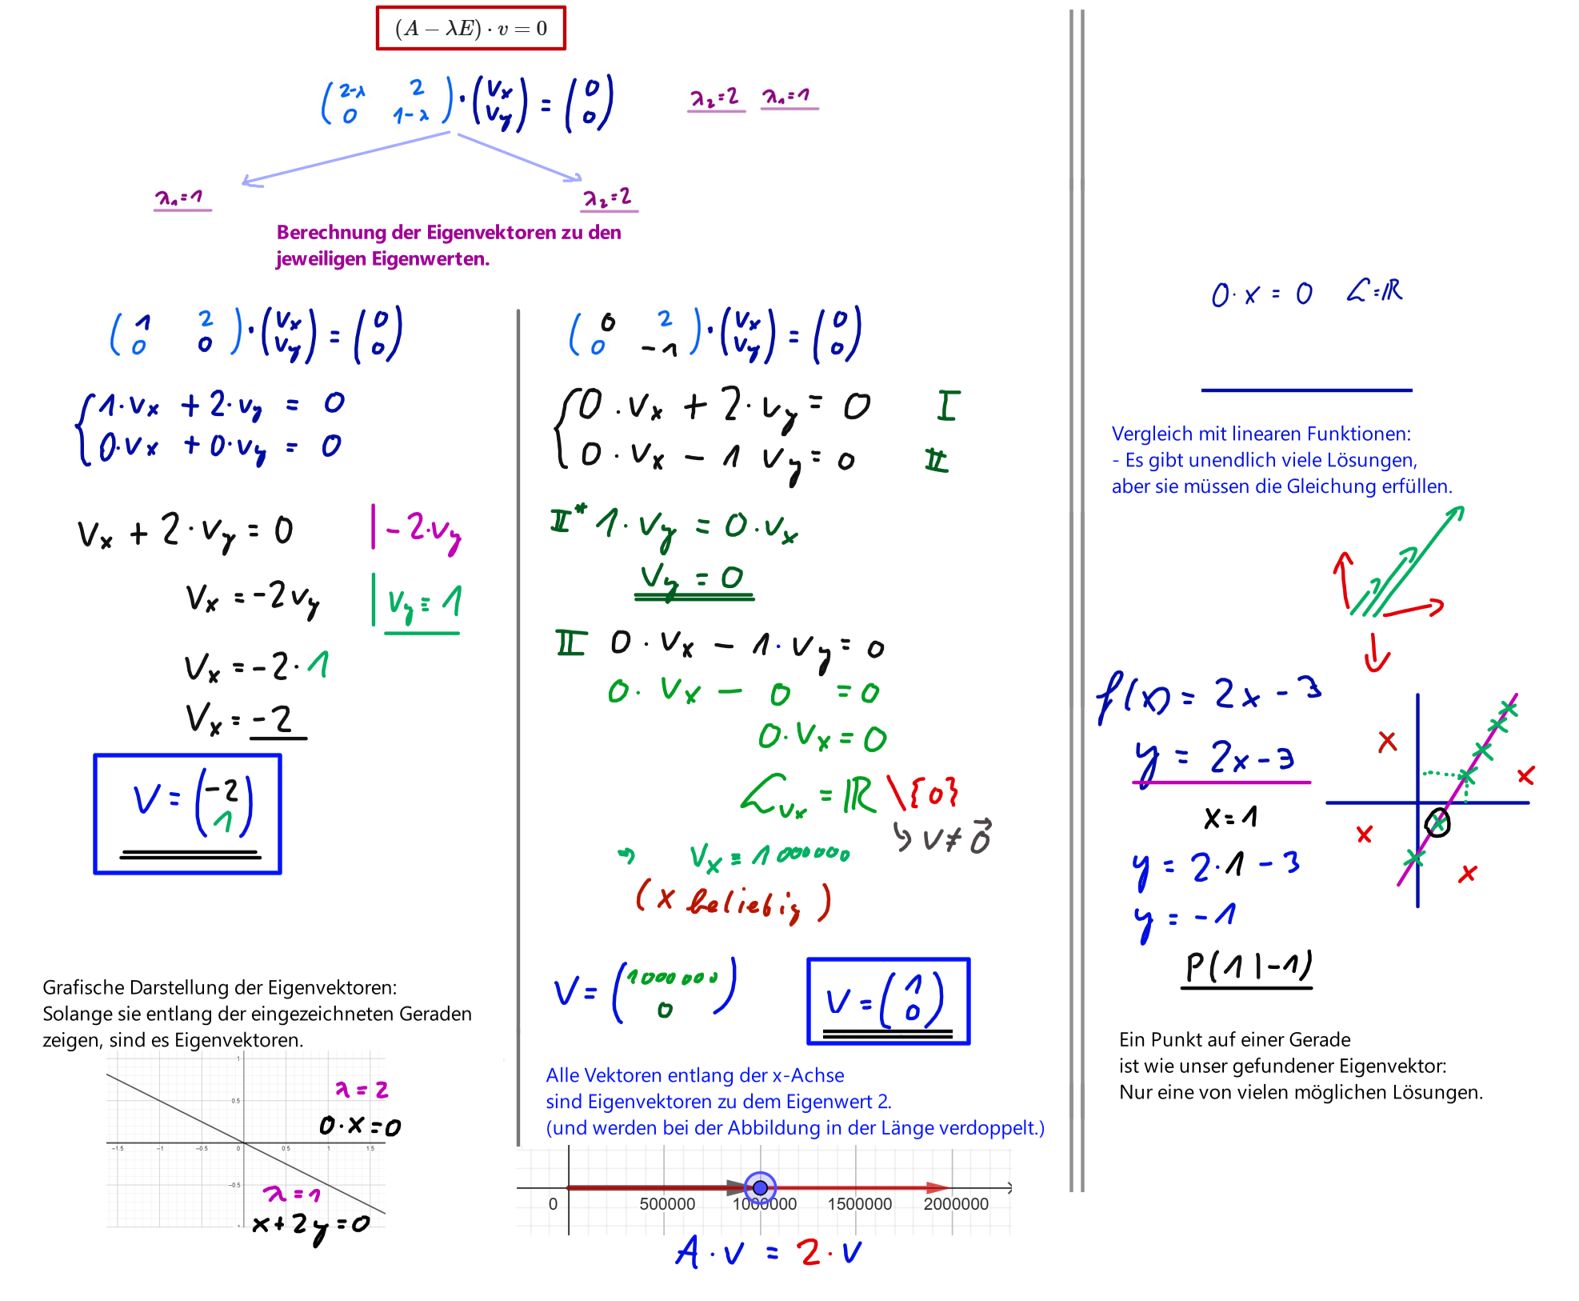 (A − λE) · v = 0
(2-λ 2
0 1-λ) · (Vx
Vy) = (0
0)
λ₂=2 λ₁=1
λ₁=1
λ₂=2
Berechnung der Eigenvektoren zu den
jeweiligen Eigenwerten.
(1 2
0 0) · (Vx
Vy) = (0
0)
1·Vx + 2·Vy = 0
0·Vx + 0·Vy = 0
Vx + 2·Vy = 0 |-2·Vy
Vx = -2Vy | Vy = 1
Vx = -2·1
Vx = -2
V = (-2
1)
Grafische Darstellung der Eigenvektoren:
Solange sie entlang der eingezeichneten Geraden
zeigen, sind es Eigenvektoren.
1
λ=2
0.5
0·x=0
-1.5 -1 -0.5 0 0.5 1 1.5
-0.5
λ=1
x+2y=0
(0 2
0 -1) · (Vx
Vy) = (0
0)
0·Vx + 2·Vy = 0 I
0·Vx - 1 Vy = 0 II
II* 1·Vy = 0·Vx
Vy = 0
II 0·Vx - 1·Vy = 0
0·Vx - 0 = 0
0·Vx = 0
𝕃Vx = ℝ \{0}
↳ V ≠ 0⃗
⇒ Vx = 1000000
(x beliebig)
V = (1000000
0)
V = (1
0)
Alle Vektoren entlang der x-Achse
sind Eigenvektoren zu dem Eigenwert 2.
(und werden bei der Abbildung in der Länge verdoppelt.)
0 500000 1000000 1500000 2000000
A·V = 2·V
0·x = 0 𝕃=ℝ
Vergleich mit linearen Funktionen:
- Es gibt unendlich viele Lösungen,
aber sie müssen die Gleichung erfüllen.
f(x) = 2x - 3
y = 2x - 3
x = 1
y = 2·1 - 3
y = -1
P(1|-1)
Ein Punkt auf einer Gerade
ist wie unser gefundener Eigenvektor:
Nur eine von vielen möglichen Lösungen.